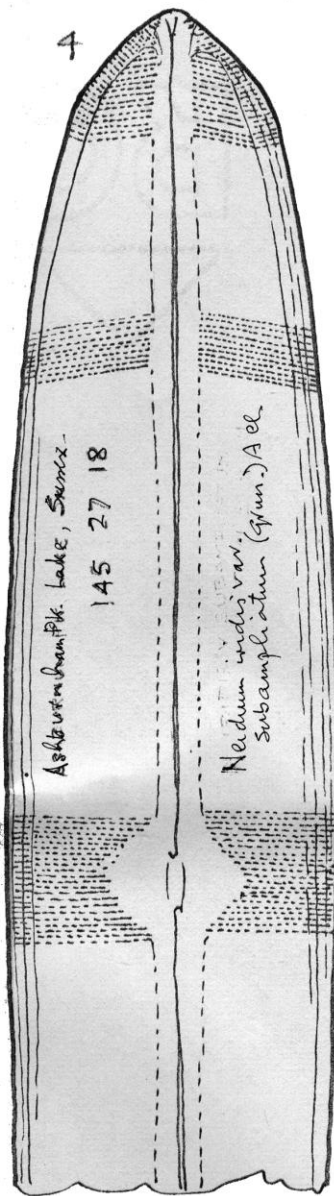 4
Ashburnham Pk. Lake, Sussex.
145 27 18
Neidium iridis var.
subampliatum (Grun.) A Cl